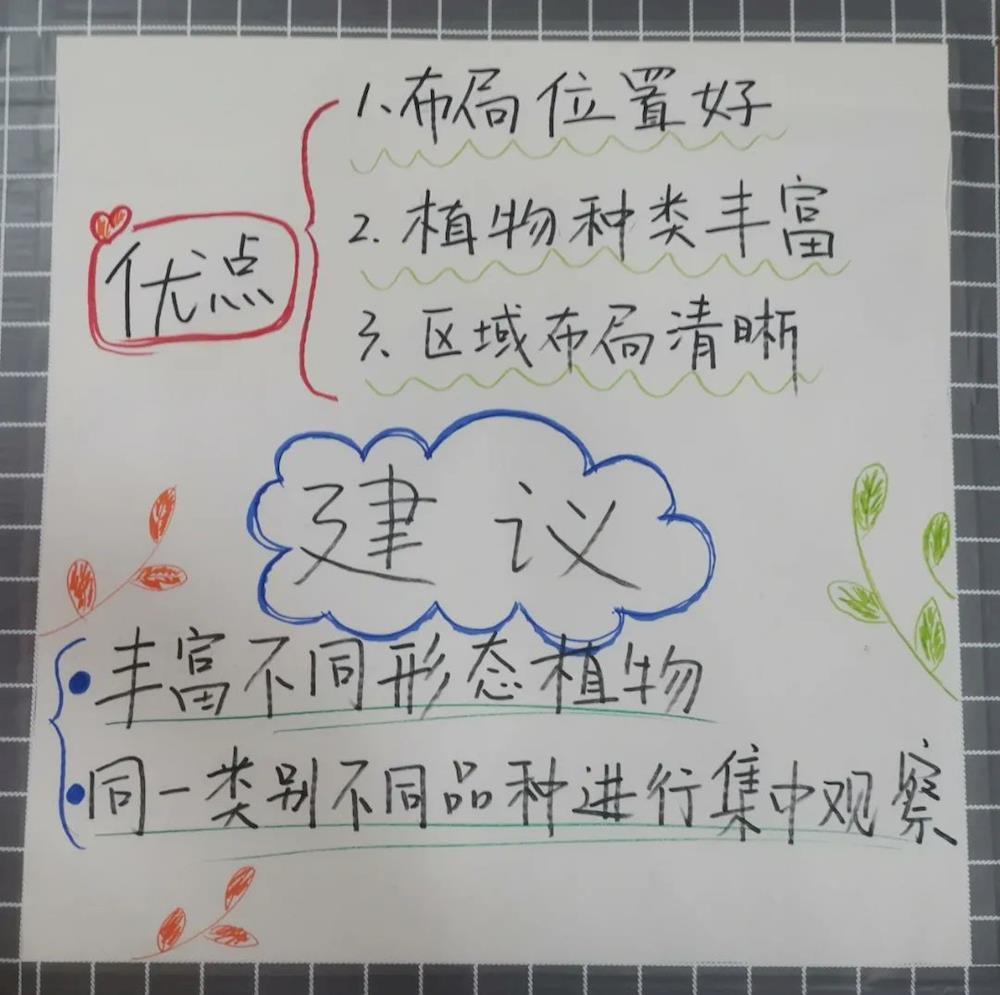 优点
1、布局位置好
2. 植物种类丰富
3、区域布局清晰
建议
丰富不同形态植物
同一类别不同品种进行集中观察